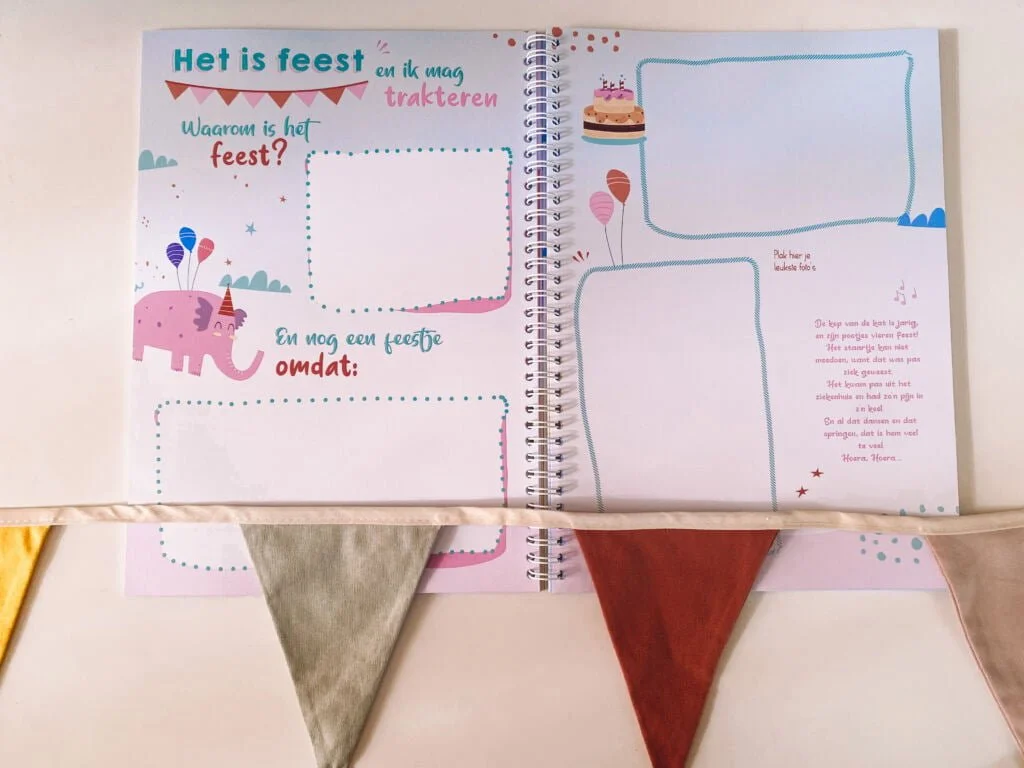 Het is feest
en ik mag
trakteren
Waarom is het
feest?
En nog een feestje
omdat:
Plak hier je
leukste foto's
De kop van de kat is jarig,
en zijn pootjes vieren feest!
Het staartje kan niet
meedoen, want dat was pas
ziek geweest.
Het kwam pas uit het
ziekenhuis en had zo'n pijn in
z'n keel.
En al dat dansen en dat
springen, dat is hem veel
te veel.
Hoera, Hoera...